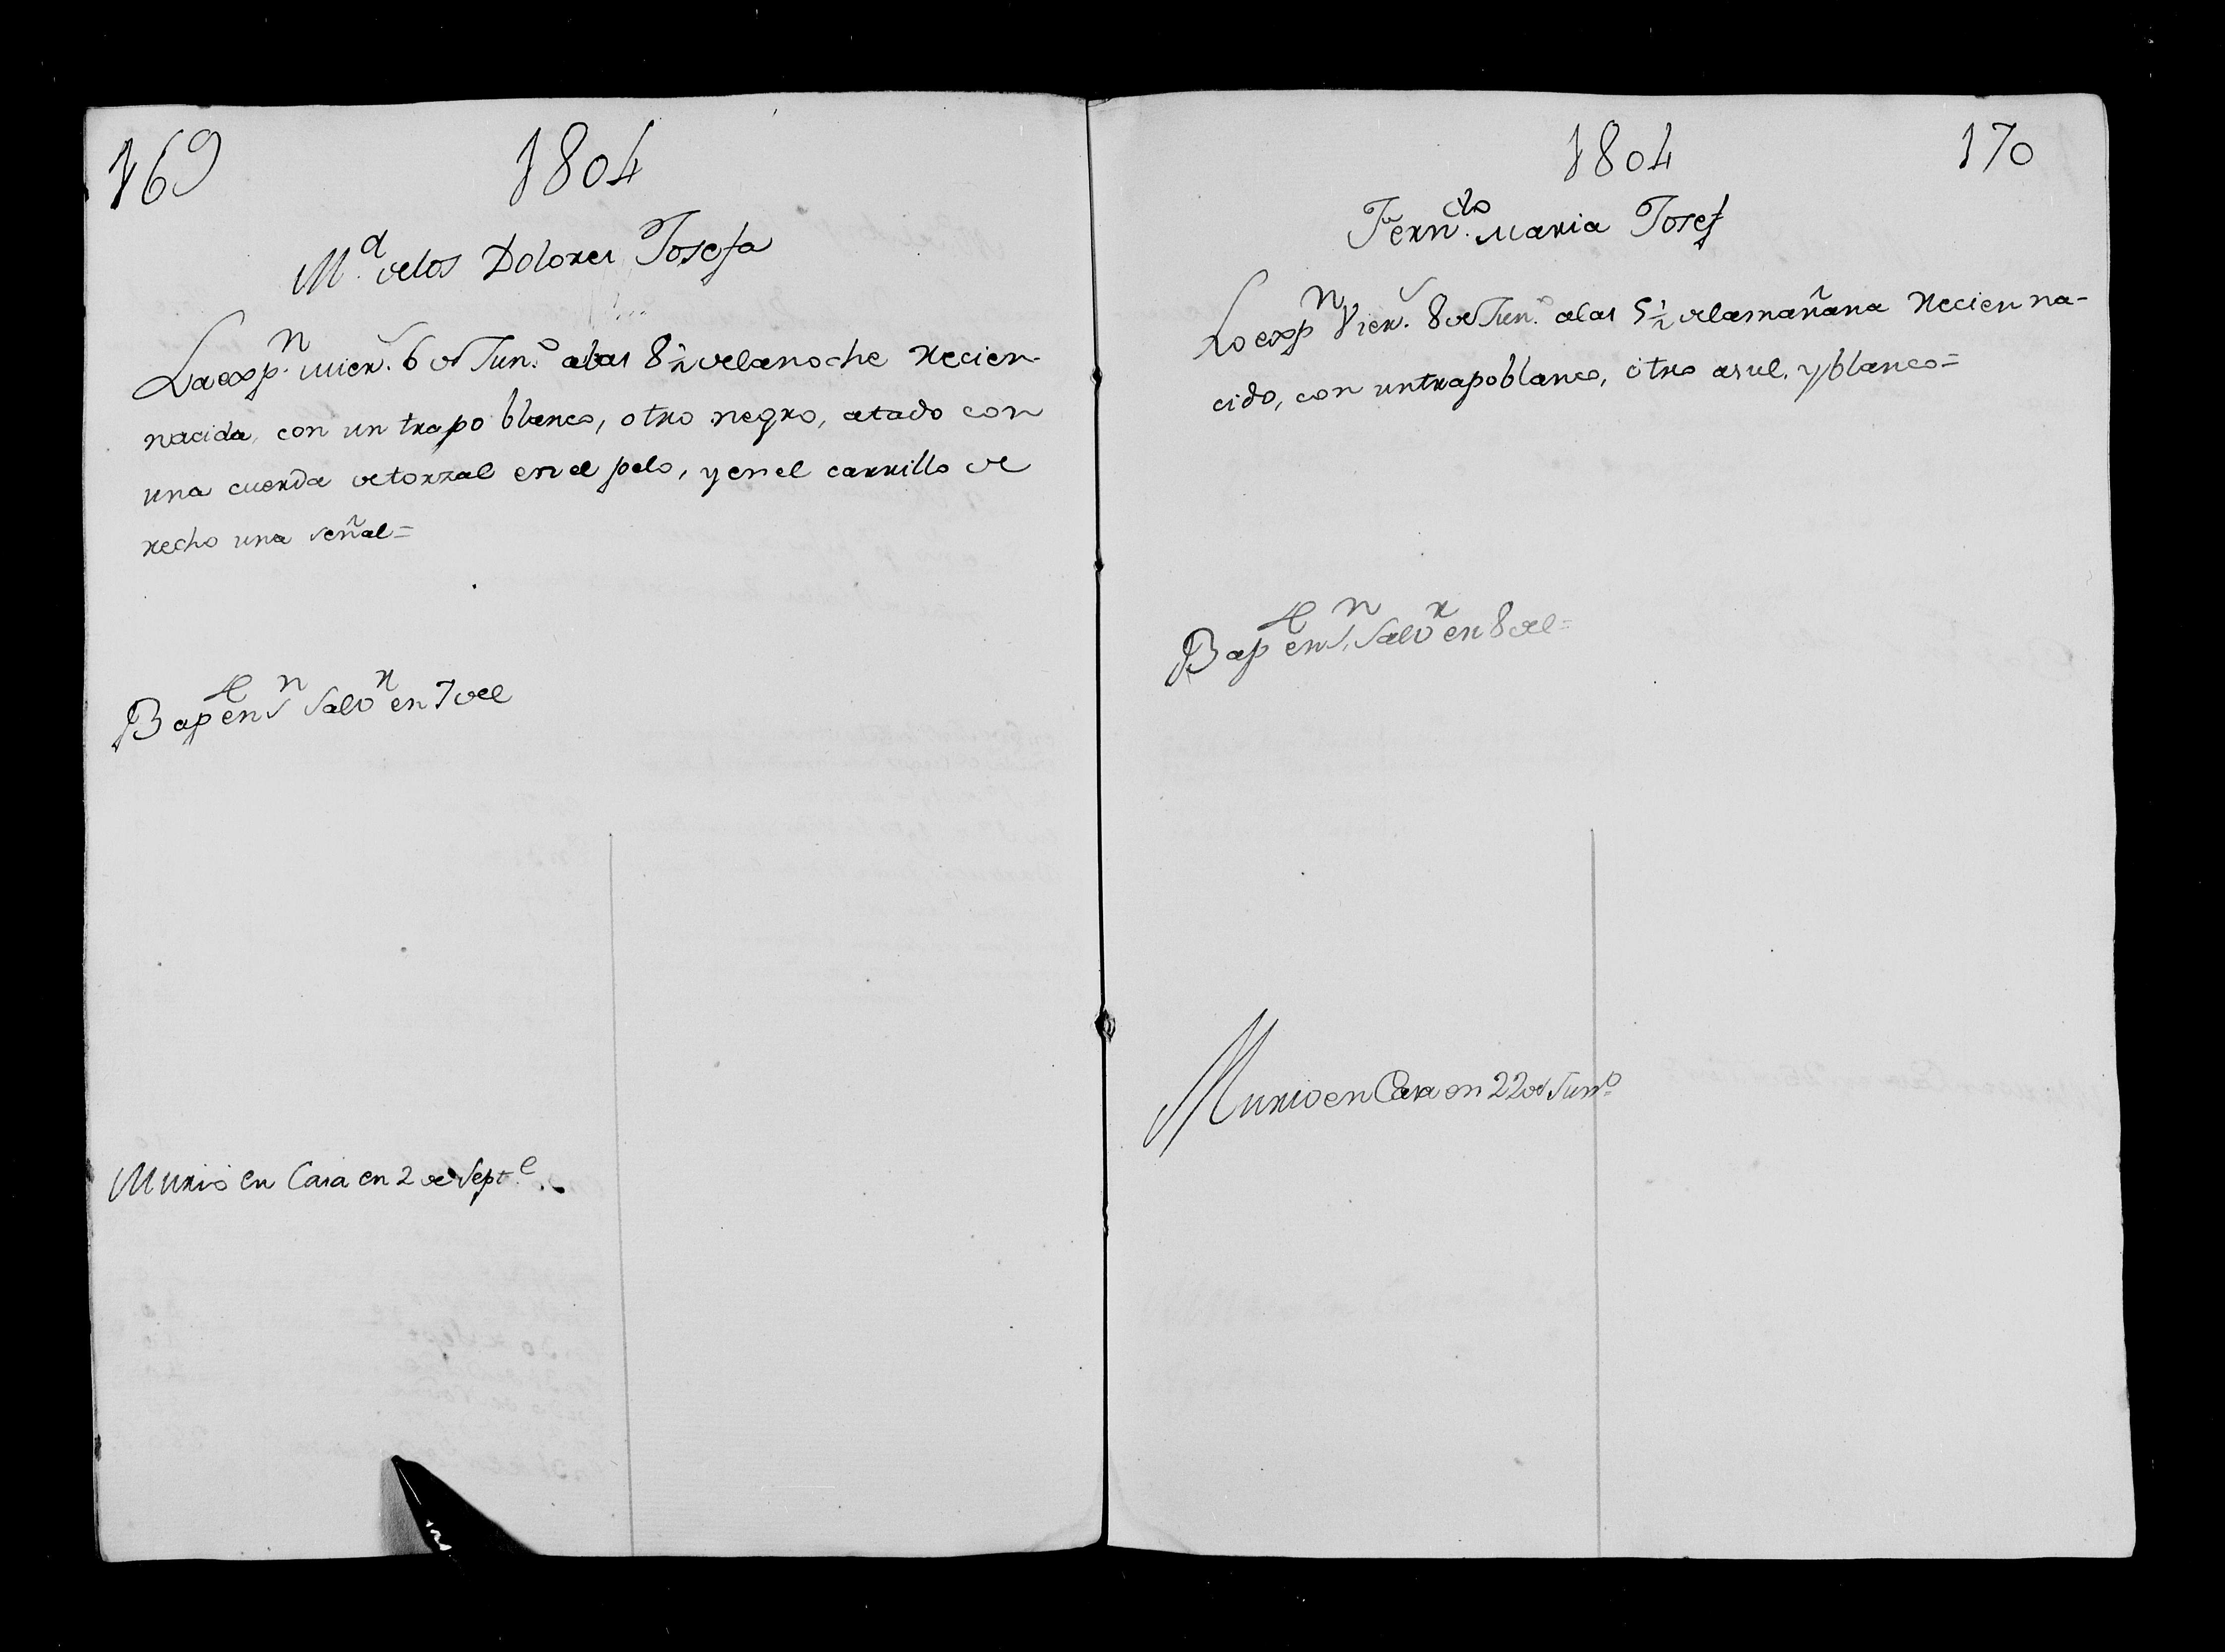 169
1804
M.ª delos Dolores Josefa
La exp.n mier.s 6 de Jun.o alas 8½ delanoche recien-
nacida, con un trapo blanco, otro negro, atado con
una cuerda detorzal en el pelo, y en el carrillo de
recho una señal=
Bap.e en S.n Salv.r en 7 del
Murio en Casa en 2 de Sept.e
1804
170
Fern.do Maria Josef
Lo exp.n Vier.s 8 de Jun.o alas 5½ delamañana recien na-
cido, con untrapo blanco, otro asul, y blanco=
Bap.e en S.n Salv.r en 8 del=
Murio en Casa en 22 de Jun.o